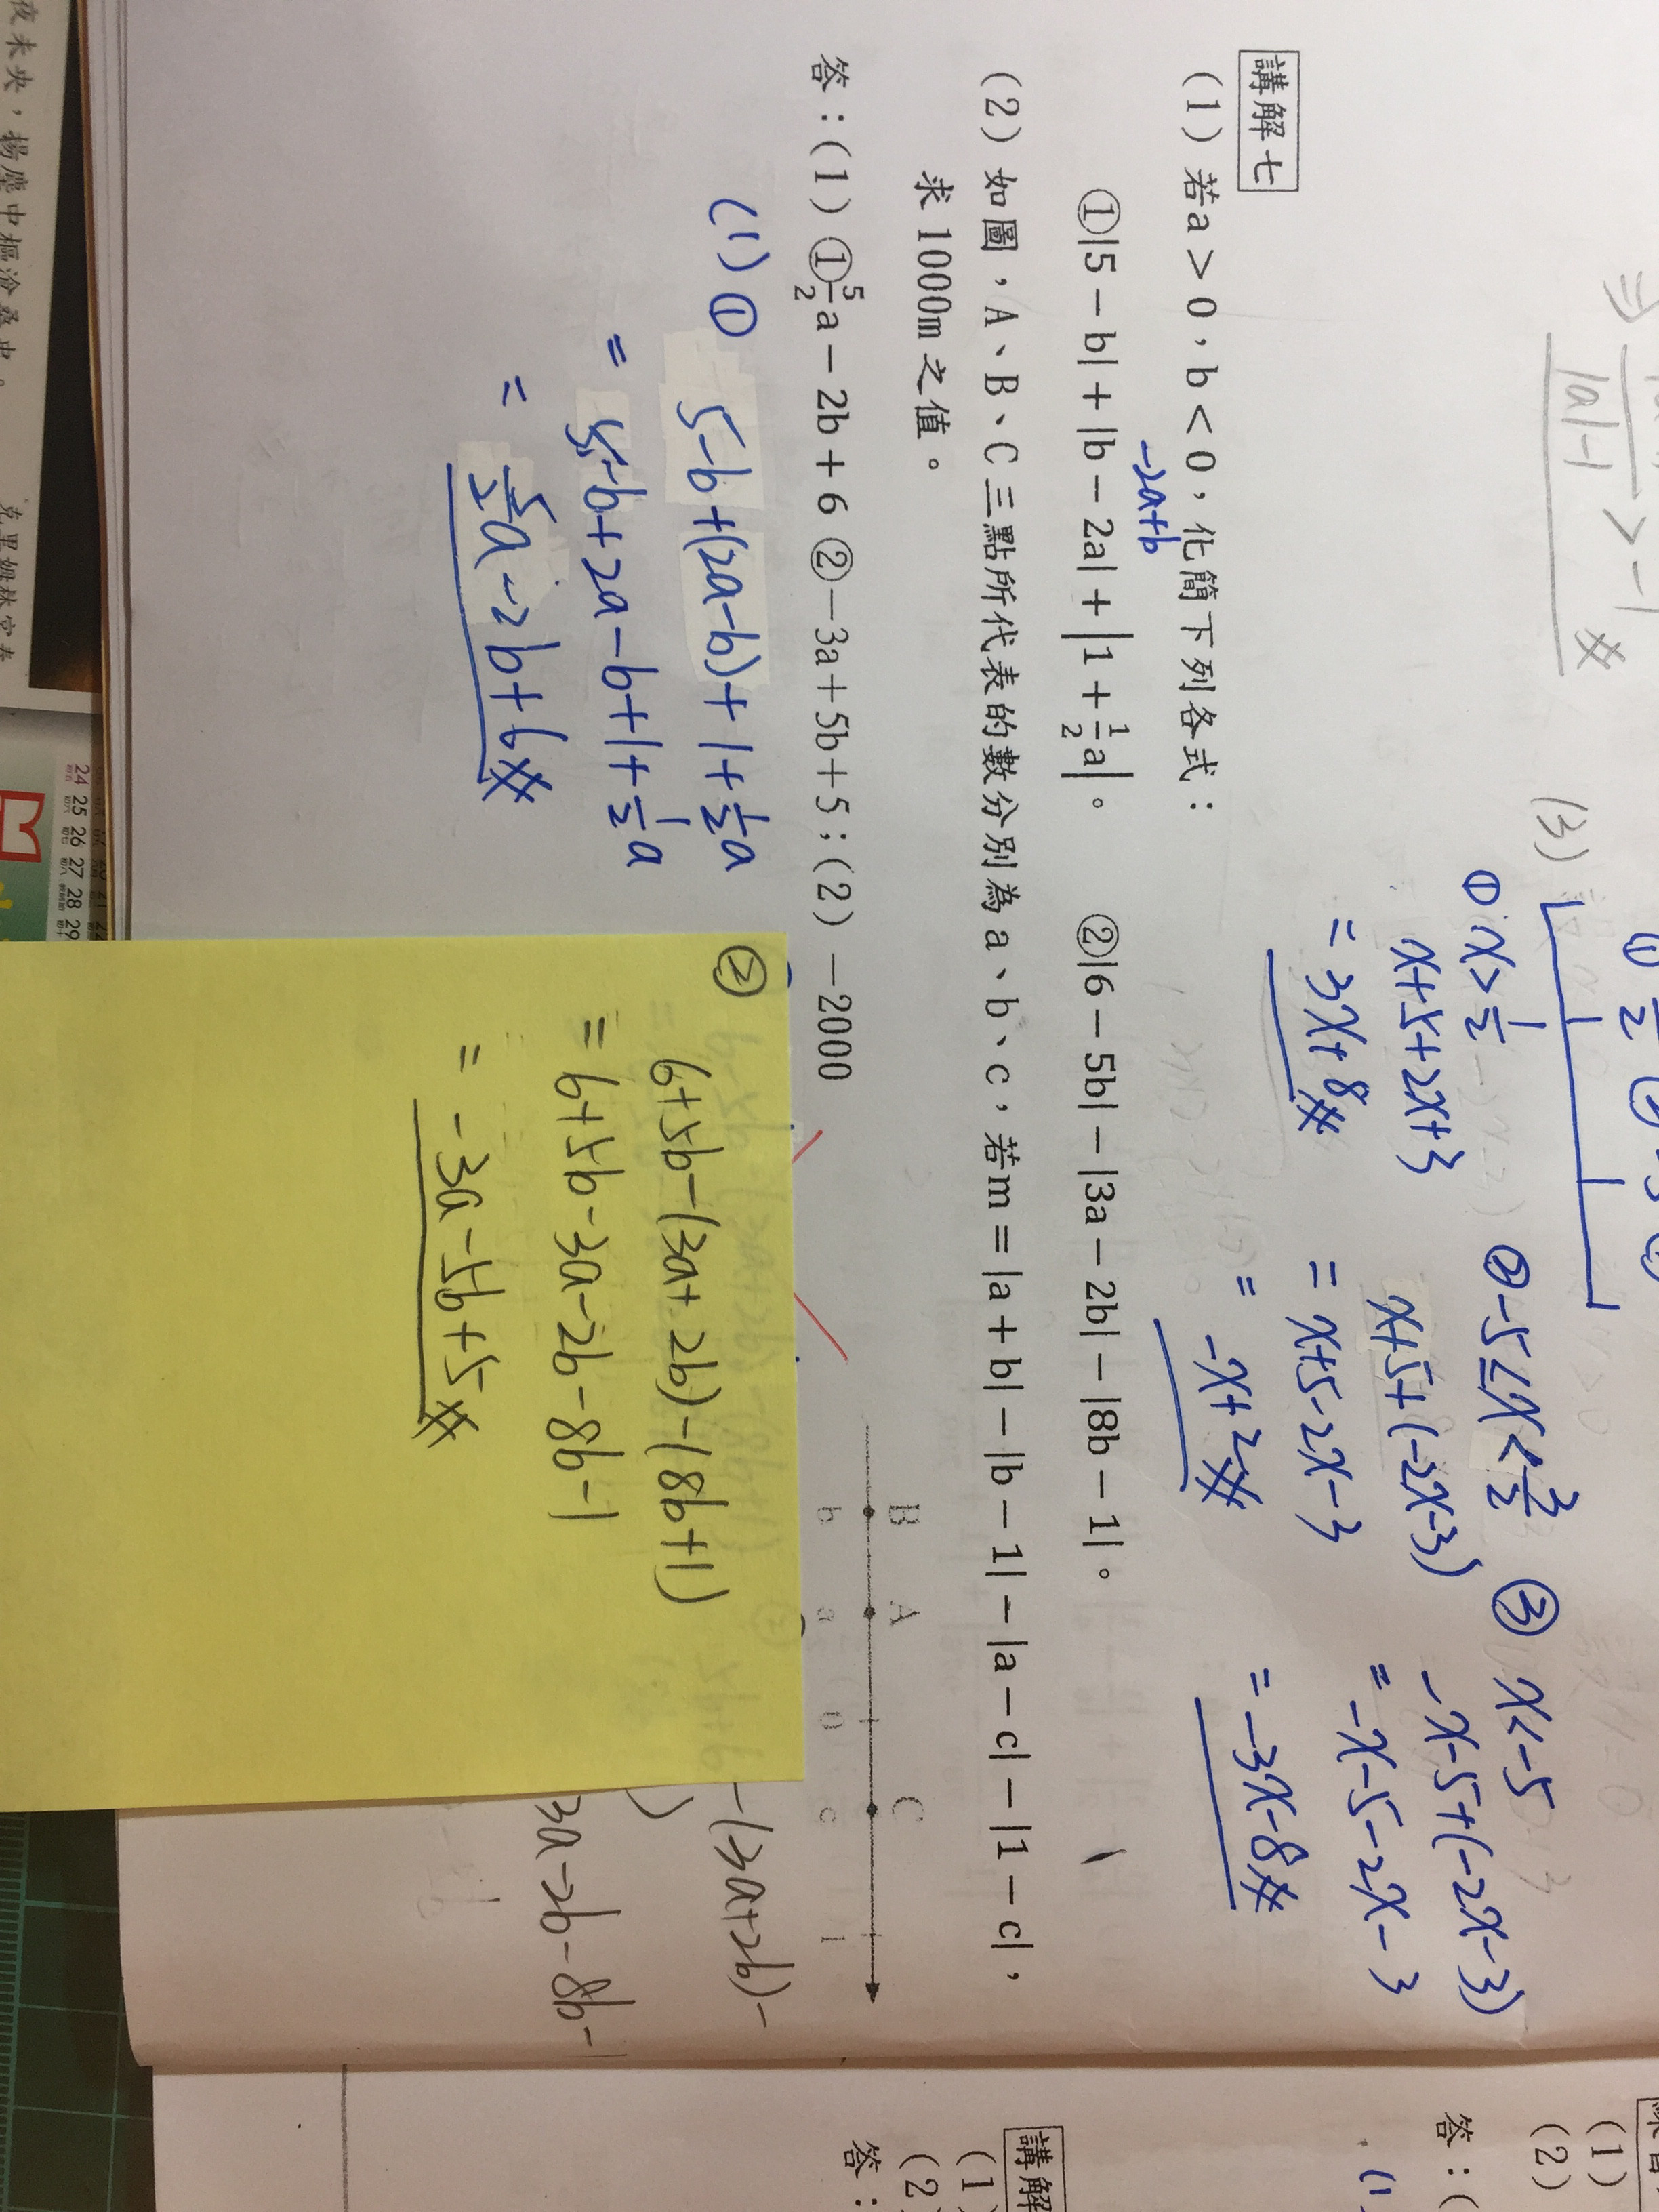 講解七
(1) 若a＞0，b＜0，化簡下列各式：
-2a+b
①|5－b|＋|b－2a|＋|1＋1/2a|。 ②|6－5b|－|3a－2b|－|8b－1|。
(2) 如圖，A、B、C三點所代表的數分別為a、b、c，若m＝|a＋b|－|b－1|－|a－c|－|1－c|，
求1000m之值。
答：(1) ①5/2a－2b＋6 ②－3a＋5b＋5；(2) －2000
B A C
b a 0 c 1
(1) ① 5-b+(2a-b)+1+1/2a
= 5-b+2a-b+1+1/2a
= 5/2a-2b+6
② 6+5b-(3a+2b)-(8b+1)
= 6+5b-3a-2b-8b-1
= -3a-5b+5
-(3a+2b)-
3a-2b-8b-
|a|-1 > -1
(3)
① x>1/2
x+5+2x+3
= 3x+8
② -5≤x<3/2
x+5+(-2x-3)
= x+5-2x-3
= -x+2
③ x<-5
-x-5+(-2x-3)
= -x-5-2x-3
= -3x-8
夜未央，揚塵中樞淪桑中。
24 25 26 27 28 29
(1)
(2)
答：(
講解
(1)
(2)
答：